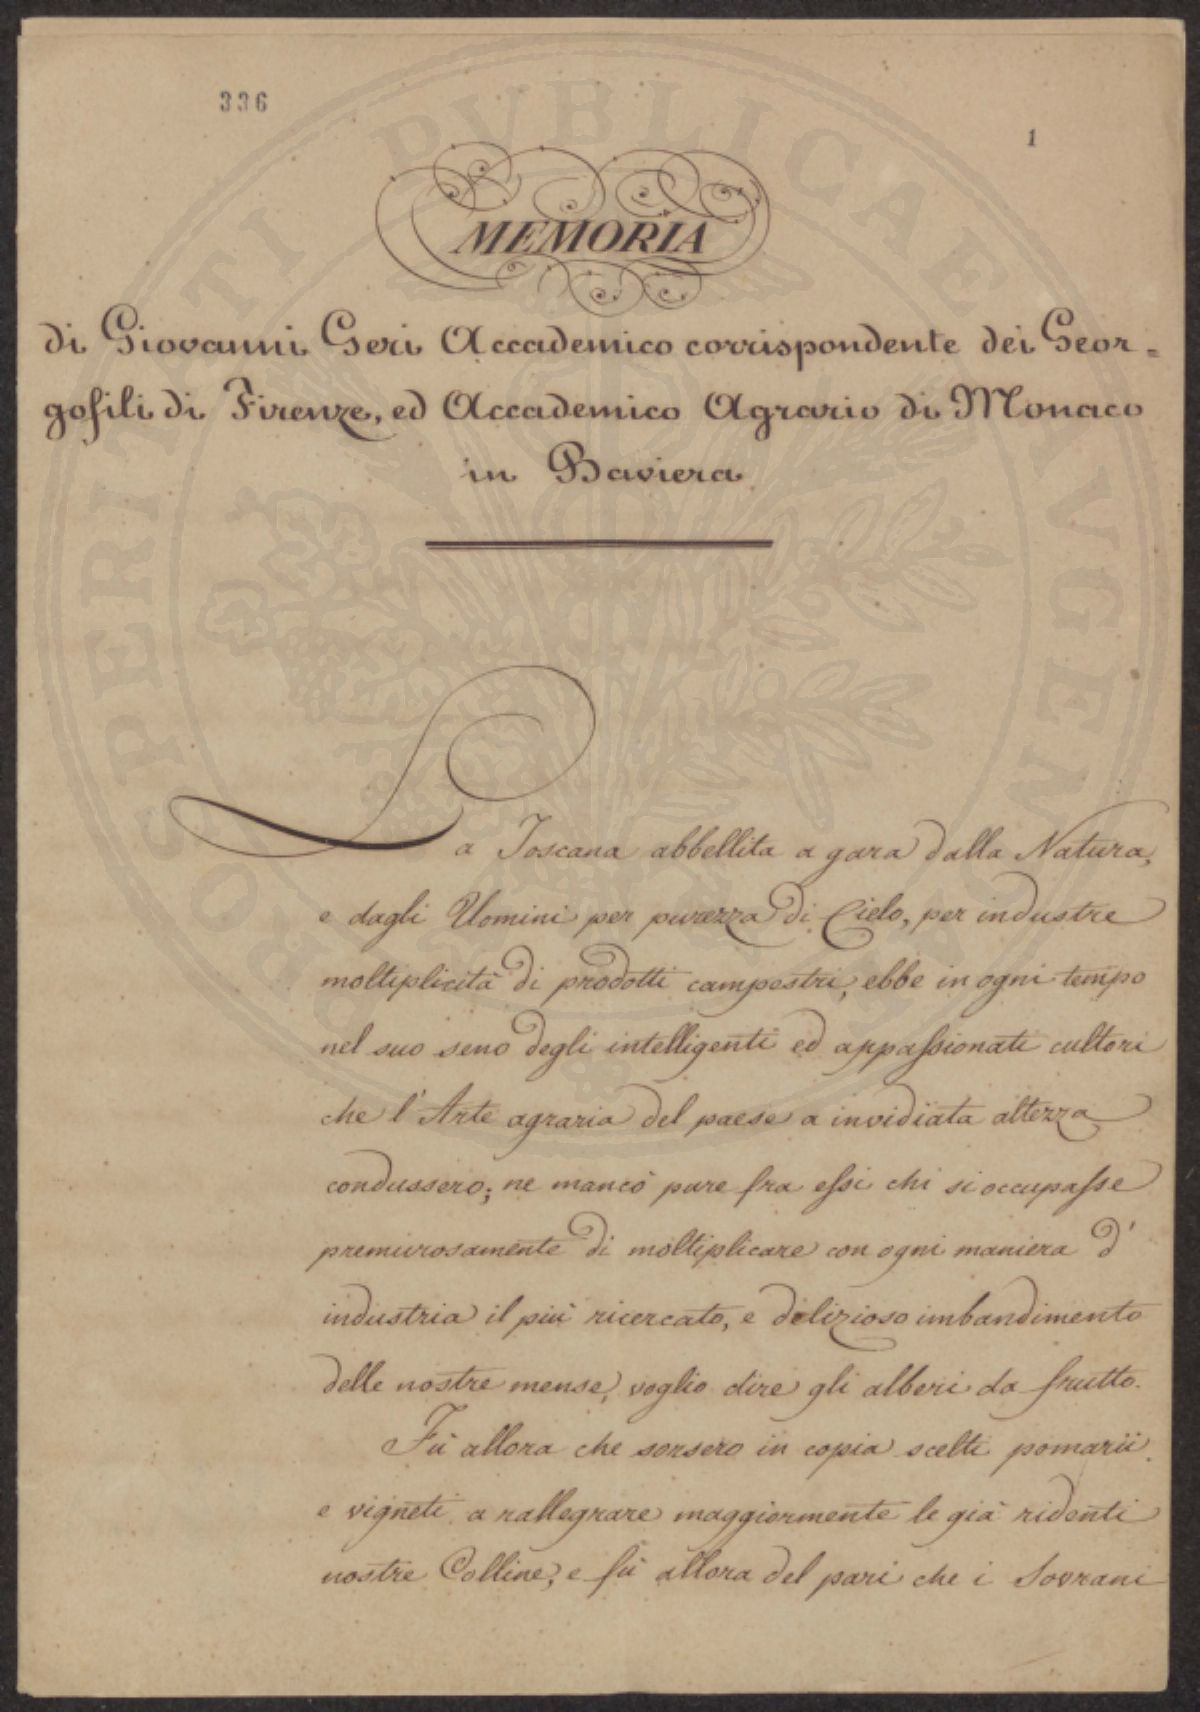 336
1
MEMORIA
di Giovanni Geri Accademico corrispondente dei Geor=
gofili di Firenze, ed Accademico Agrario di Monaco
in Baviera
La Toscana abbellita a gara dalla Natura,
e dagli Uomini per purezza di Cielo, per industre
moltiplicità di prodotti campestri, ebbe in ogni tempo
nel suo seno degli intelligenti ed appassionati cultori
che l'Arte agraria del paese a invidiata altezza
condussero; ne mancò pure fra essi chi si occupasse
premurosamente di moltiplicare con ogni maniera d'
industria il più ricercato, e delizioso imbandimento
delle nostre mense, voglio dire gli alberi da frutto.
Fù allora che sorsero in copia scelti pomarii
e vigneti a rallegrare maggiormente le già ridenti
nostre Colline, e fù allora del pari che i Sovrani
PROSPERITATI PVBLICAE AVGENDAE